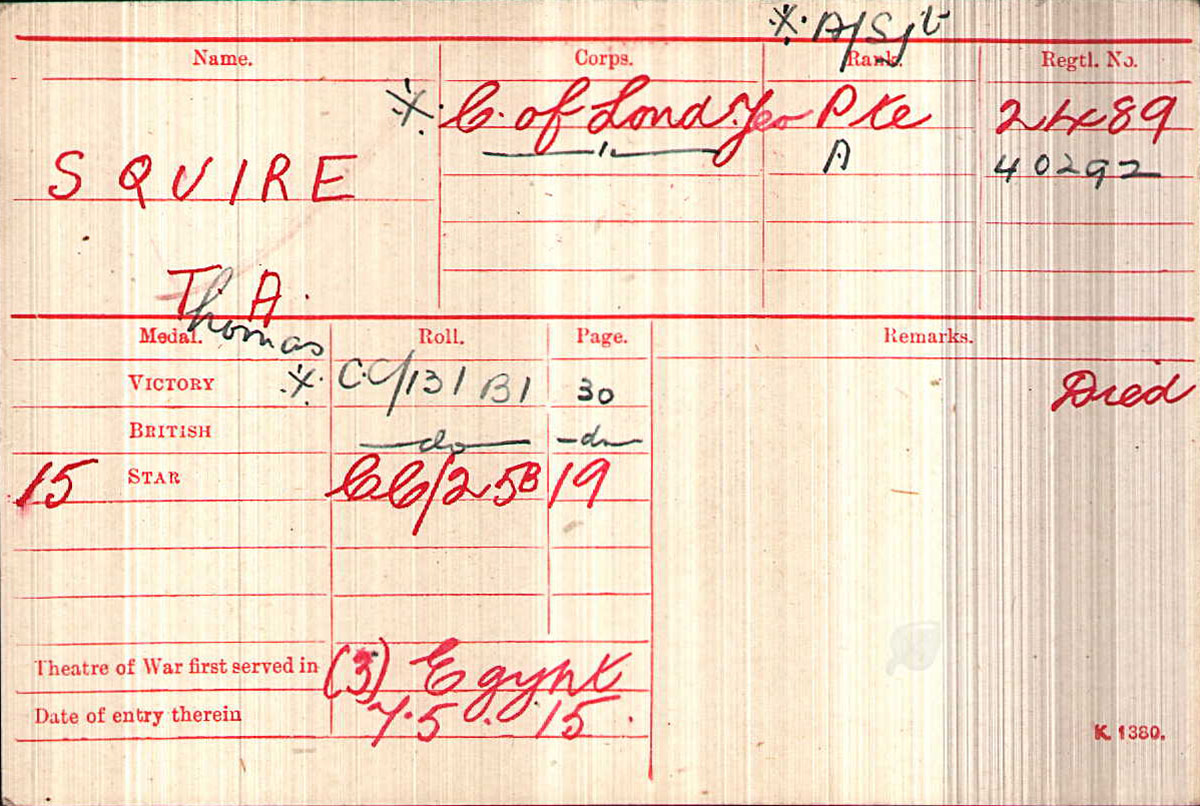 ※ A/Sjt
Name. Corps. Rank. Regtl. No.
※ C. of Lond. Yeo Pte 2489
SQUIRE —„— A 40292
T. A.
Thomas
Medal. Roll. Page. Remarks.
VICTORY ※ CC/131 B1 30 Died
BRITISH —do— —do—
15 STAR CC/25B 19
Theatre of War first served in (3) Egypt
Date of entry therein 7.5.15.
K. 1380.